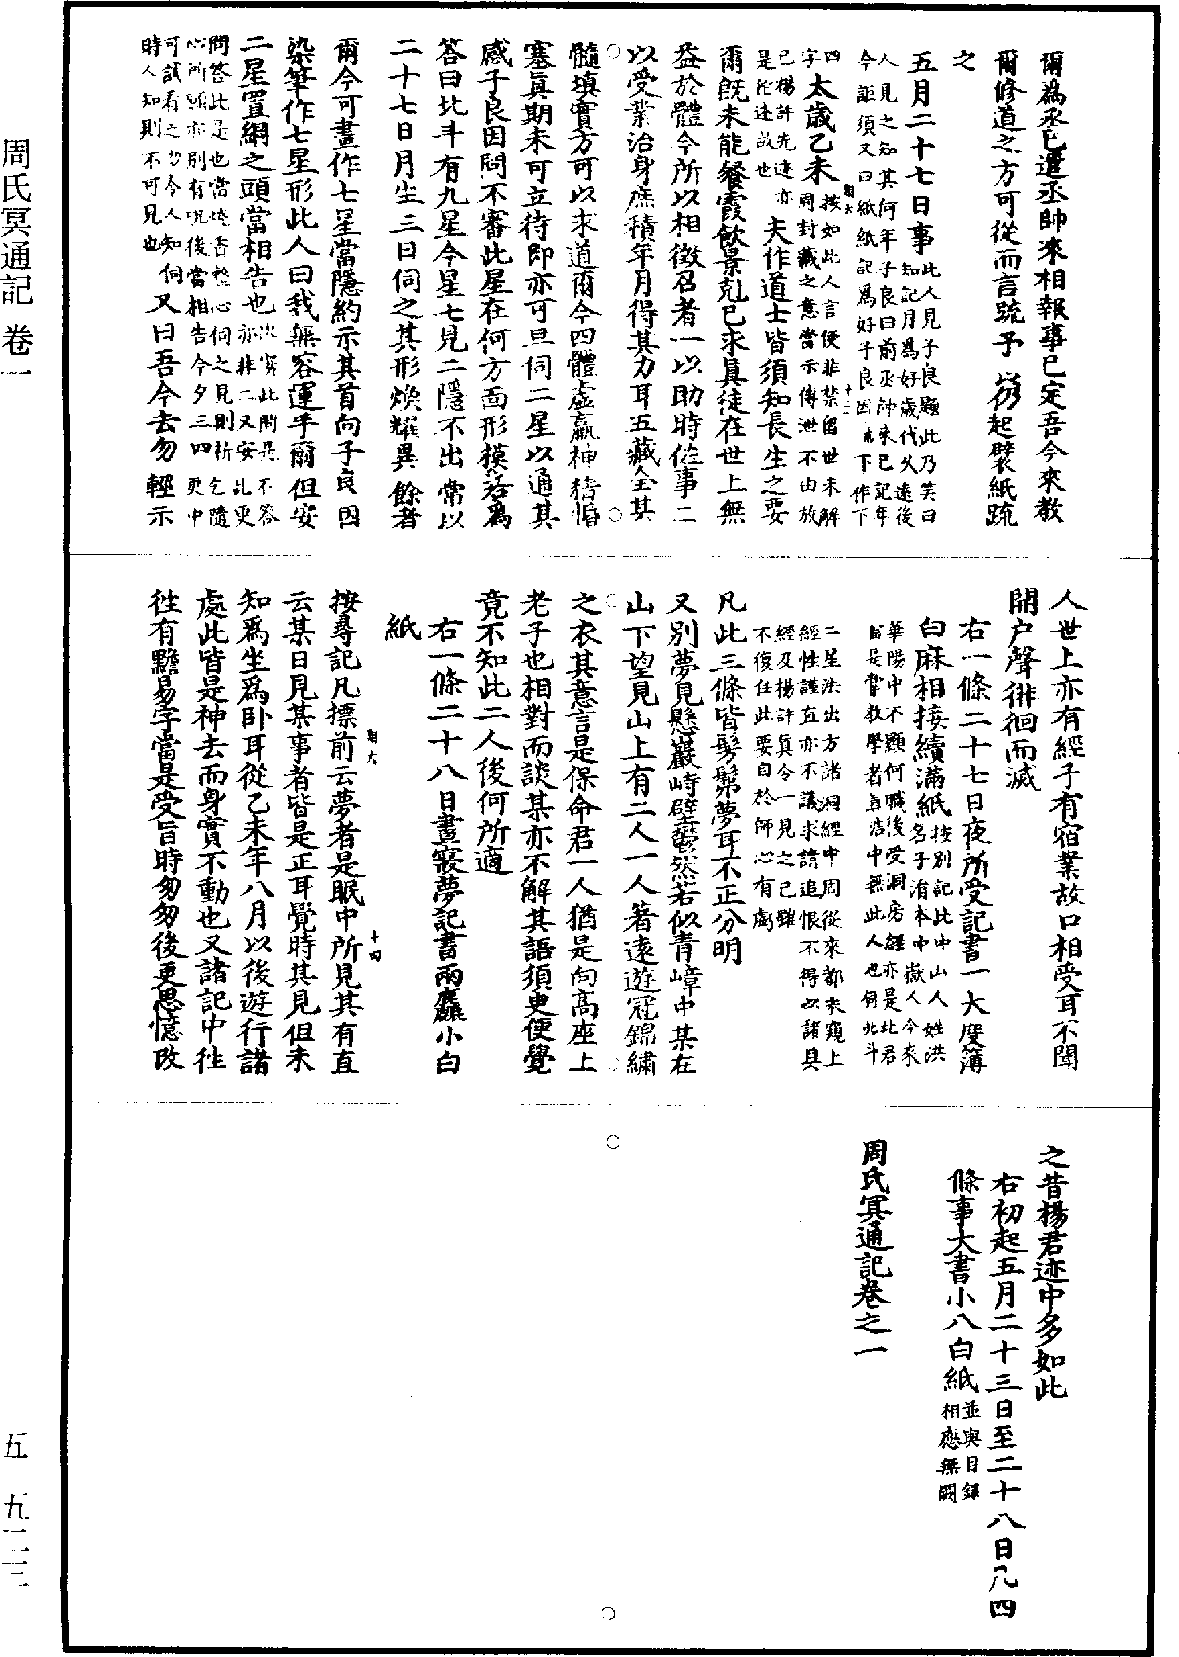 周氏冥通記 卷一
爾為丞已遣丞帥來相報事已定吾今來教
爾修道之方可從而言疏予乃起襞紙疏
之
五月二十七日事此人見子良題此乃笑曰知記月為好歲代久遠後
人見之知其何年子良曰前丞帥來已記年今詎須又曰紙紙記為好子良因末下作下
四字太歲乙未按如此人言便非禁留世未解同封藏之意當示傳泄不由放
已楊許先迹亦是范迹故也夫作道士皆須知長生之要
爾既未能餐霞飲景剋己求真徒在世上無
益於體今所以相徵召者一以助時佐事二
以受業治身庶積年月得其力耳五藏全其
髓填實方可以求道爾今四體虛羸神精惛
塞真期未可立待即亦可旦伺二星以通其
感子良因問不審此星在何方面形模若為
答曰北斗有九星今星七見二隱不出常以
二十七日月生三日伺之其形煥耀異餘者
爾今可畫作七星當隱約示其首向子良因
染筆作七星形此人曰我無容運手爾但安
二星置網之頭當相告也
問答此是也當燒香整心伺之見則祈乞隨
心所願亦別有呪後當相告今夕三四更中
可試看之勿令人知伺
時人知則不可見也又曰吾今去勿輕示
人世上亦有經子有宿業故口相受耳不聞
開户聲徘徊而滅
右一條二十七日夜所受記書一大度薄
白麻相接續滿紙按別記此中山人姓洪名子涓本中嶽人今來
華陽中不顯何職後受洞房經亦是此君
皆是嘗教學者真誥中無此人也伺北斗
二星法出方諸洞經中周從來都未窺上
經性謹直亦不議求請追恨不得以諸具
經及楊許真令一見之已雖
不復任此要自於師心有虧
凡此三條皆髣髴夢耳不正分明
又別夢見懸巖峙壁鬱然若似青嶂中某在
山下望見山上有二人一人著遠遊冠錦繡
之衣其意言是保命君一人猶是向高座上
老子也相對而談某亦不解其語須臾便覺
竟不知此二人後何所適
右一條二十八日晝寢夢記書兩麤小白
紙
按尋記凡摽前云夢者是眠中所見其有直
云某日見某事者皆是正耳覺時其見但未
知為坐為卧耳從乙未年八月以後遊行諸
處此皆是神去而身實不動也又諸記中往
往有黵易字當是受旨時匆匆後更思憶改
之昔楊君迹中多如此
右初起五月二十三日至二十八日凡四
條事大書小八白紙並與目錄相應無闕
周氏冥通記卷之一
五 九二三